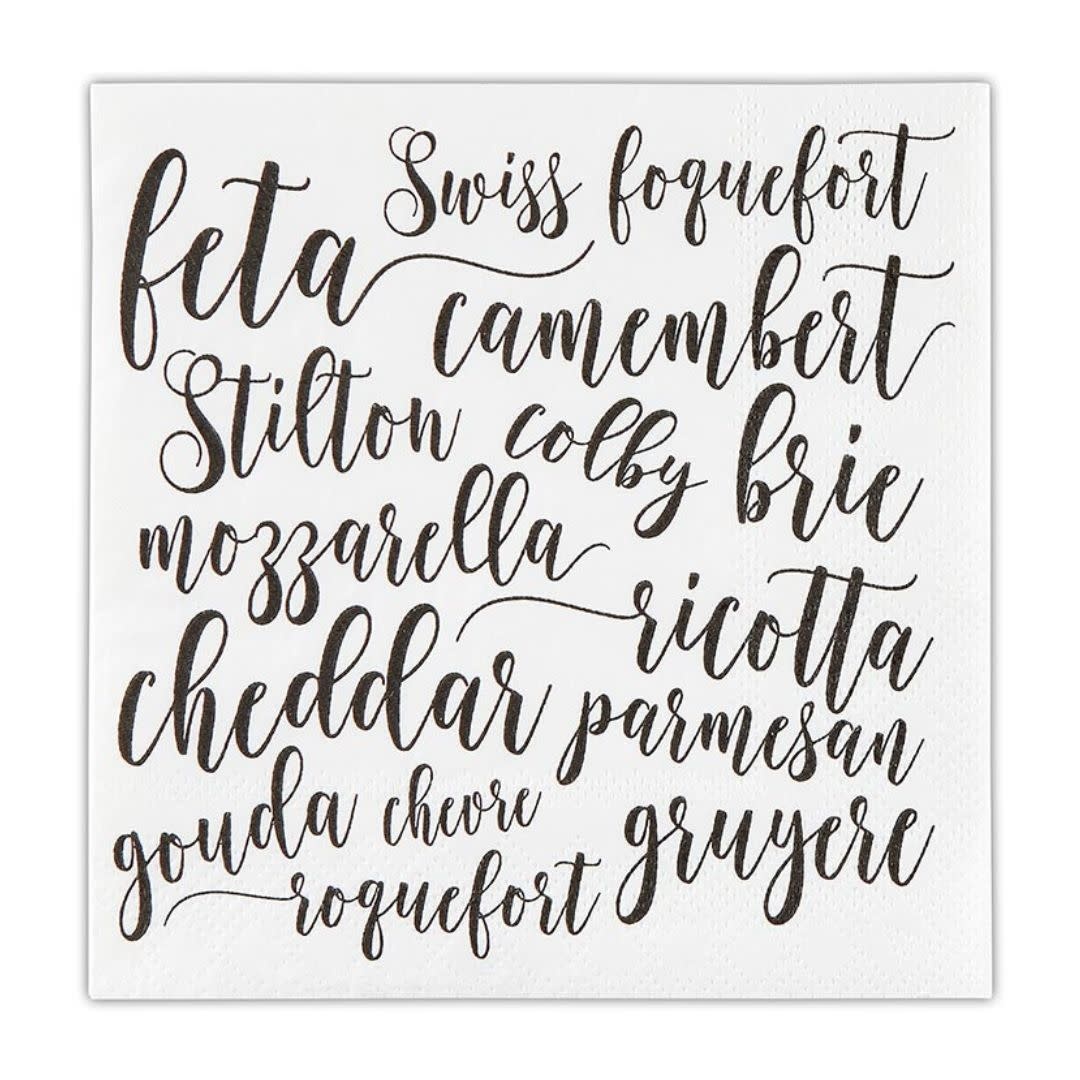 feta Swiss foquefort
camembert
Stilton colby brie
mozzarella
ricotta
cheddar parmesan
gouda chevre gruyere
roquefort